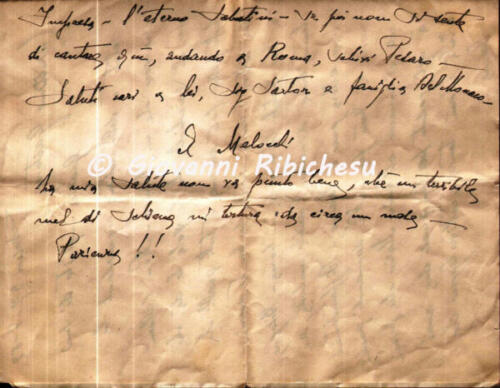 l'eterno Sabatini - Se poi non si sente
di cantare qui, andando a Roma, Pesaro -
Saluti cari a lei, Sig. Sartori e famiglia Del Monaco -
A. Melocchi
© Giovanni Ribichesu
La mia salute non va punto bene, un terribile
mal di schiena mi tortura da circa un mese -
Pazienza !!